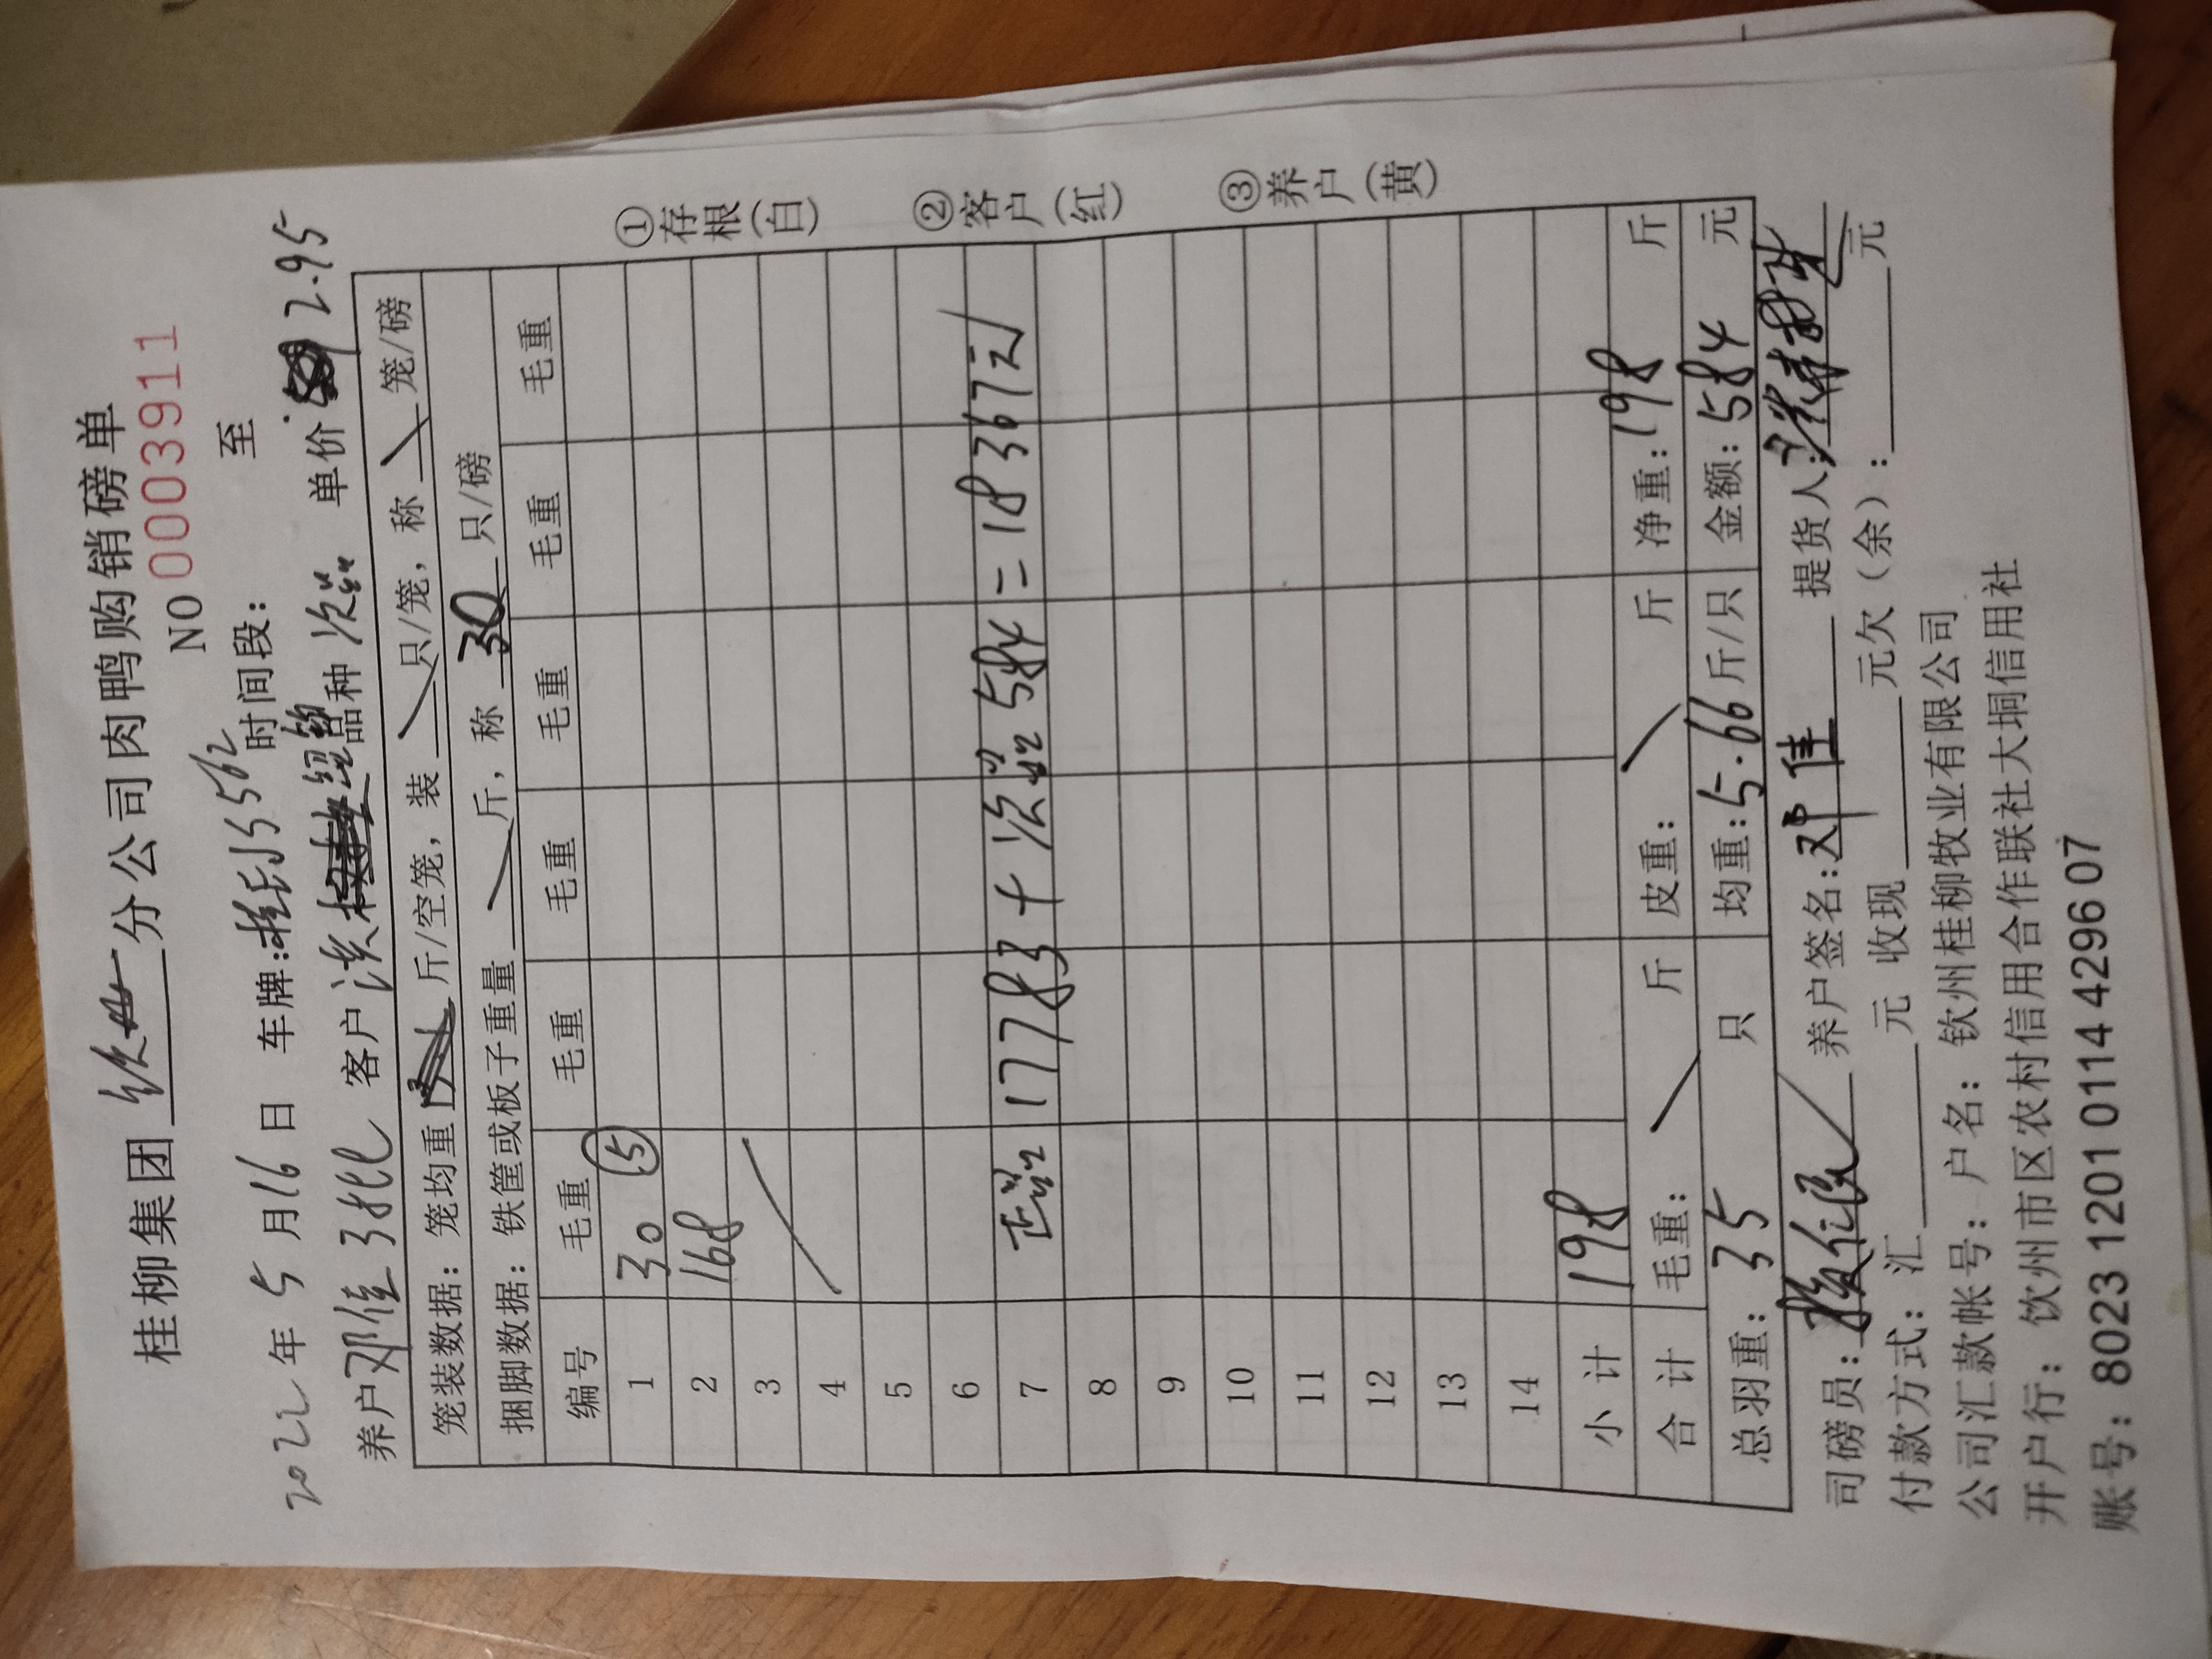 桂柳集团 钦州 分公司肉鸭购销磅单
NO 0003911
2022年5月16日 车牌:桂 时间段: 至
养户 邓佳3批 客户 品种 次品 单价 2.95
笼装数据: 笼均重 斤/空笼, 装 只/笼, 称 笼/磅
捆脚数据: 铁筐或板子重量 斤, 称 30 只/磅
编号 毛重 毛重 毛重 毛重 毛重 毛重
1 30 ⑤
2 168
3
4
5
6
7 正品 17783 + 次品 584 = 18367元
8
9
10
11
12
13
14
小计 198
合计 毛重: 斤 皮重: 斤 净重: 198 斤
总羽重: 35 只 均重: 5.66 斤/只 金额: 584 元
司磅员: 养户签名: 邓佳 提货人:
付款方式: 汇 元 收现 元欠(余): 元
公司汇款帐号: 户名: 钦州桂柳牧业有限公司
开户行: 饮州市区农村信用合作联社大垌信用社
账号: 8023 1201 0114 4296 07
①存根(白)
②客户(红)
③养户(黄)